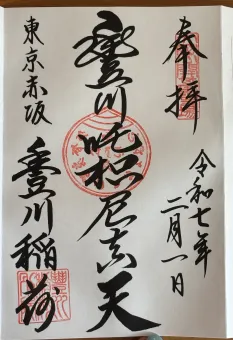 奉拝
令和七年
二月一日
豐川吒枳尼真天
東京赤坂
豐川稲荷